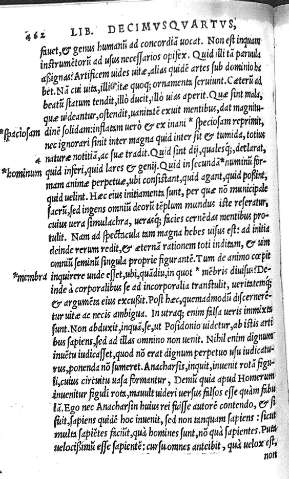 462 LIB. DECIMVSQVARTVS,
fauet, & genus humanũ ad concordiã uocat. Non est inquam
instrumẽtorũ ad usus necessarios opifex. Quid illi tã paruula
aßignas? Artificem uides uitæ, alias quidẽ artes sub dominio ha
bet. Nã cui uita, illi uitæ quoq; ornamenta seruiunt. Cæterũ ad
beatũ statum tendit, illò ducit, illò uias aperit. Quæ sint mala,
quæ uideantur, ostendit, uanitatẽ exuit mentibus, dat magnitu
*speciosam dinẽ solidam: inflatam uerò & ex inani * speciosam reprimit,
nec ignorari sinit inter magna quid intersit & tumida, totius
naturæ notitiã, ac suæ tradit. Quid sint dij, qualesq;, declarat,
*hominum quid inferi, quid lares & genij. Quid in secundã *numinũ for-
mam animæ perpetuæ, ubi consistant, quid agant, quid poßint,
quid uelint. Hæc eius initiamenta sunt, per quæ nõ municipale
sacrũ, sed ingens omniũ deorũ tẽplum mundus iste reseratur,
cuius uera simulachra, uerasq; facies cernẽdas mentibus pro-
tulit. Nam ad spectacula tam magna hebes uisus est: ad initia
deinde rerum redit, & æternã rationem toti inditam, & uim
omniũ seminũ singula propriè figurantẽ. Tum de animo cœpit
*membra inquirere unde esset, ubi, quãdiu, in quot * mẽbris diuisus? De-
inde à corporalibus se ad incorporalia transtulit, ueritatemq;
& argumẽta eius excußit. Post hæc, quemadmodũ discernere-
tur uitæ ac uocis ambigua. In utraq; enim falsa ueris immixta
sunt. Non abduxit, inquã, se, ut Posidonio uidetur, ab istis arti
bus sapiens, sed ad illas omnino non uenit. Nihil enim dignum
inuẽtu iudicasset, quod nõ erat dignum perpetuo usu iudicatu-
rus, ponenda nõ sumeret. Anacharsis, inquit, inuenit rotã figu-
li, cuius circuitu uasa formantur, Demũ quia apud Homerum
inuenitur figuli rota, mauult uideri uersus falsos esse quàm fabu
lã. Ego nec Anacharsin huius rei fuisse autorẽ contendo, & si
fuit, sapiens quidẽ hoc inuenit, sed non tanquam sapiens: sicut
multa sapiẽtes faciũt, quà homines sunt, nõ quà sapientes. Puta
uelocißimũ esse sapientẽ: cursu omnes anteibit, quà uelox est,
non